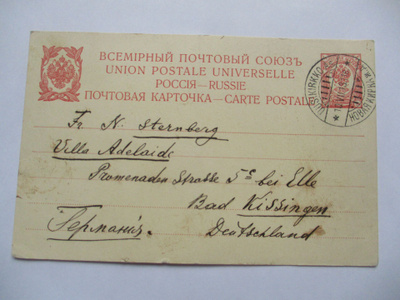 ВСЕМІРНЫЙ ПОЧТОВЫЙ СОЮЗЪ
UNION POSTALE UNIVERSELLE
РОССІЯ—RUSSIE
ПОЧТОВАЯ КАРТОЧКА—CARTE POSTALE
Fr N. Sternberg
Villa Adelaide
Promenaden Strasse 5 bei Elle
Bad Kissingen
Германія
Deutschland